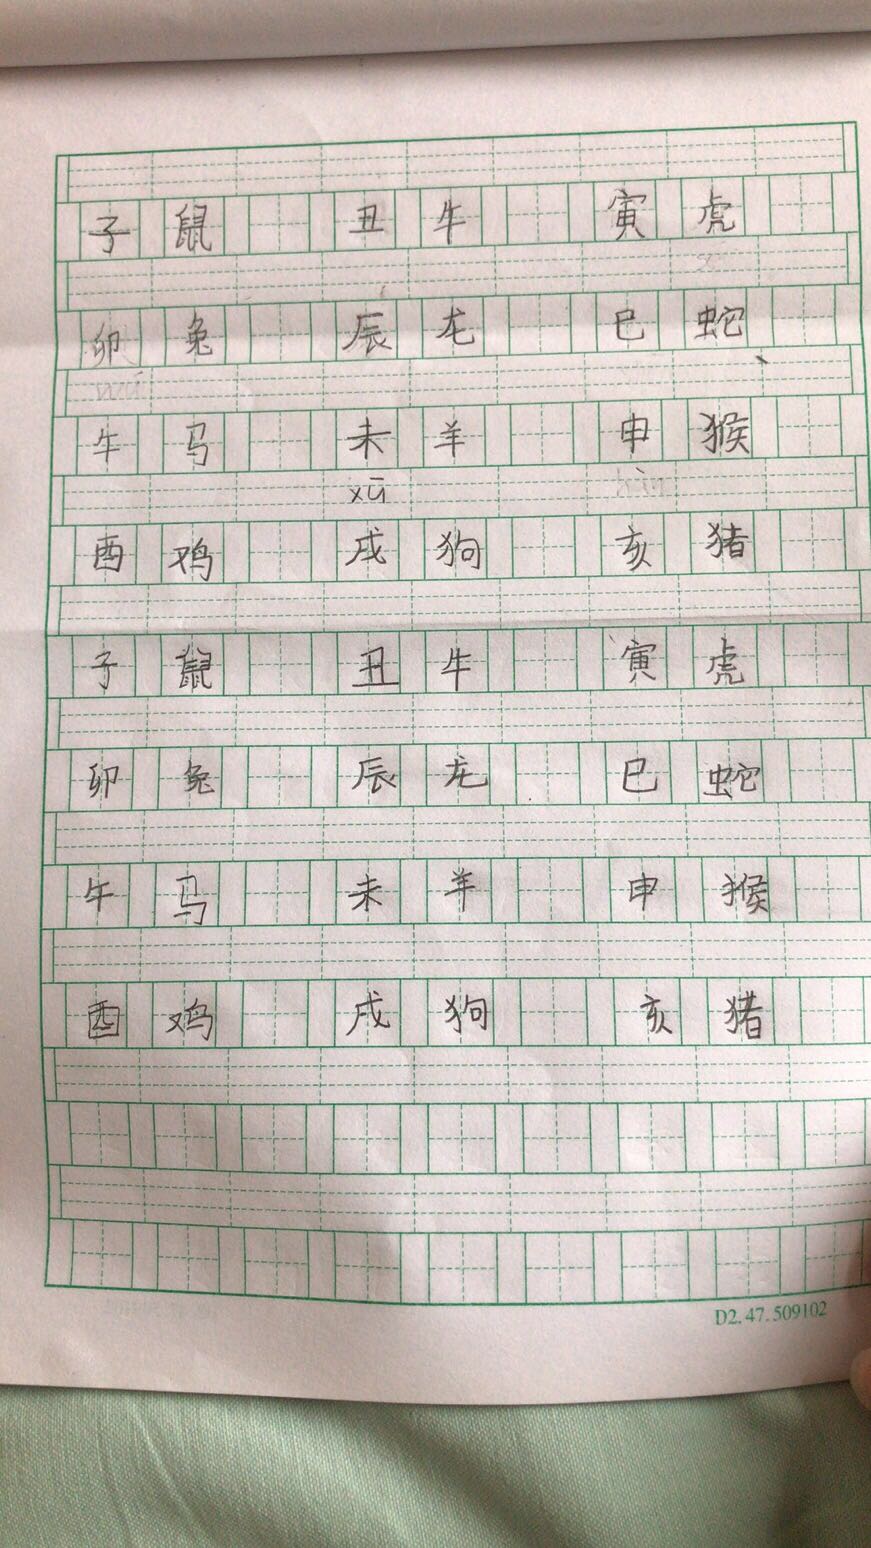 子鼠 丑牛 寅虎
卯兔 辰龙 巳蛇
牛马 未羊 申猴
xū
酉鸡 戌狗 亥猪
子鼠 丑牛 寅虎
卯兔 辰龙 巳蛇
午马 未羊 申猴
酉鸡 戌狗 亥猪
D2.47.509102